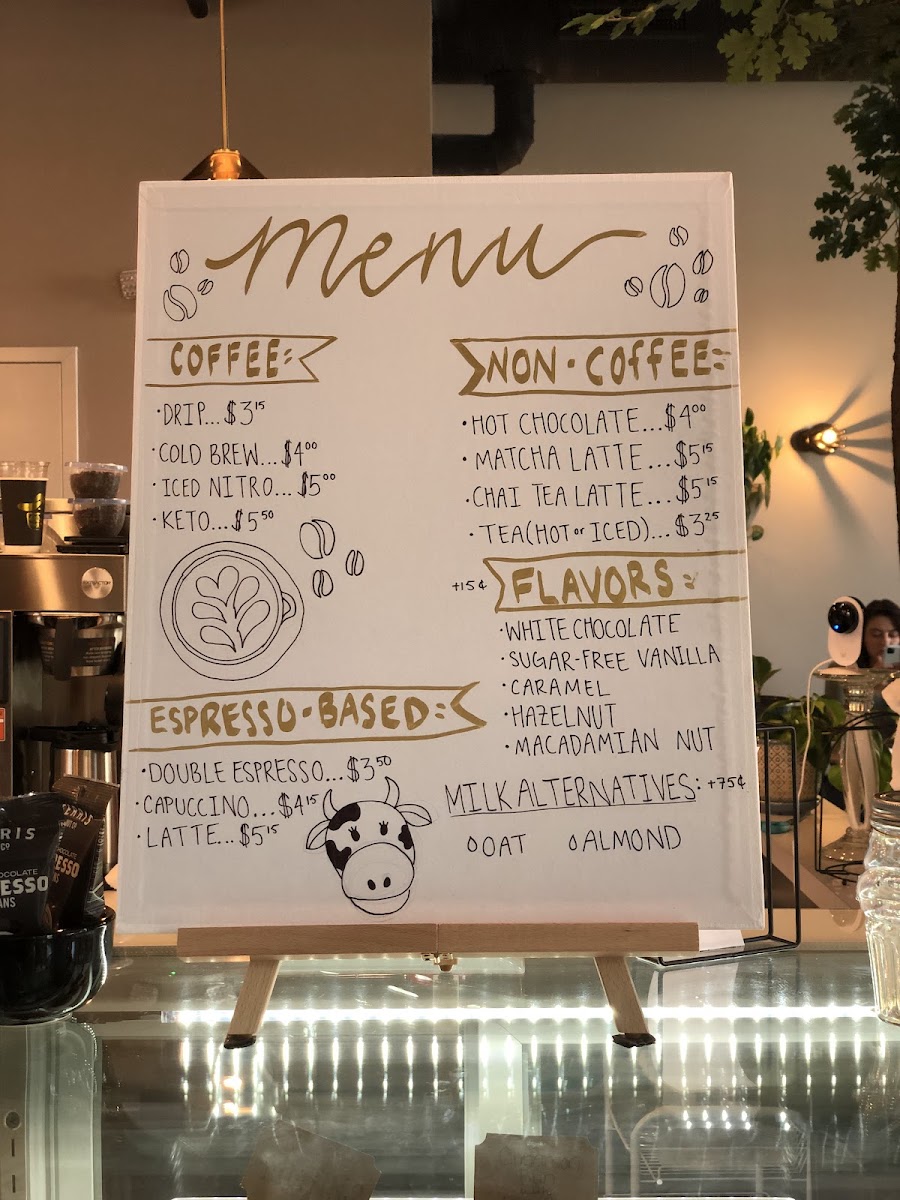 Menu
COFFEE:
·DRIP...$3¹⁵
·COLD BREW...$4⁰⁰
·ICED NITRO...$5⁰⁰
·KETO...$5⁵⁰
ESPRESSO·BASED:
·DOUBLE ESPRESSO...$3⁵⁰
·CAPUCCINO...$4¹⁵
·LATTE...$5¹⁵
NON·COFFEE:
·HOT CHOCOLATE...$4⁰⁰
·MATCHA LATTE...$5¹⁵
·CHAI TEA LATTE...$5¹⁵
·TEA(HOT or ICED)...$3²⁵
+15¢ FLAVORS:
·WHITE CHOCOLATE
·SUGAR-FREE VANILLA
·CARAMEL
·HAZELNUT
·MACADAMIAN NUT
MILK ALTERNATIVES: +75¢
OAT ALMOND
RIS
CO
OCOLATE
ESSO
ANS
ESSO